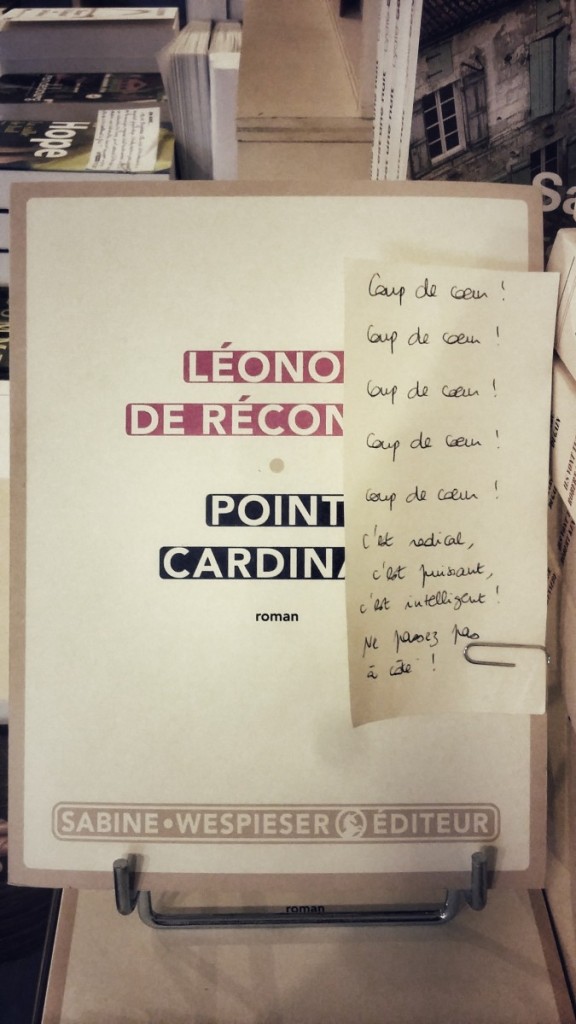 Hope
Sa
LÉONO
DE RÉCON
POINT
CARDINA
roman
Coup de cœur !
Coup de cœur !
Coup de cœur !
Coup de cœur !
Coup de cœur !
C'est radical,
c'est puissant,
c'est intelligent !
Ne passez pas
à côté !
SABINE•WESPIESER ÉDITEUR
roman